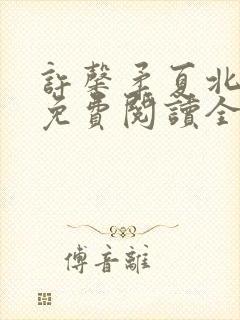 許馨矛夏北
免費閱讀全
傅音離